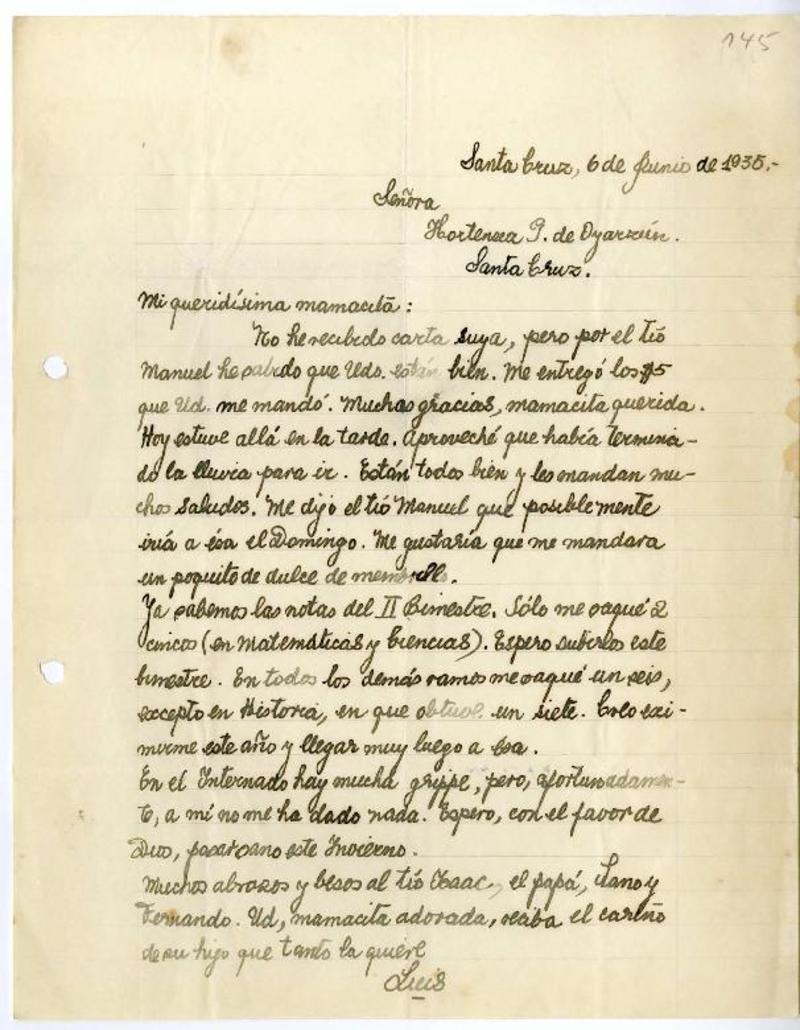 145
Santa Cruz, 6 de Junio de 1935.-
Señora
Hortensia P. de Oyarzún.
Santa Cruz.
Mi queridísima mamacita:
No he recibido carta suya, pero por el tío
Manuel he sabido que Uds. están bien. Me entregó los $5
que Ud. me mandó. Muchas gracias, mamacita querida.
Hoy estuve allá en la tarde. Aproveché que había termina-
do la lluvia para ir. Están todos bien y les mandan mu-
chos saludos. Me dijo el tío Manuel que posiblemente
iría a ésa el Domingo. Me gustaría que me mandara
un poquito de dulce de membrillo.
Ya sabemos las notas del II Bimestre. Sólo me saqué 2
cincos (en Matemáticas y Ciencias). Espero subirlos este
bimestre. En todos los demás ramos me saqué un seis,
excepto en Historia, en que obtuve un siete. Creo exi-
mirme este año y llegar muy luego a ésa.
En el Internado hay mucha grippe, pero, afortunadamen-
te, a mí no me ha dado nada. Espero, con el favor de
Dios, pasar sano este Invierno.
Muchos abrazos y besos al tío Isaac, el papá, Nano y
Fernando. Ud, mamacita adorada, reciba el cariño
de su hijo que tanto la quiere
Luis